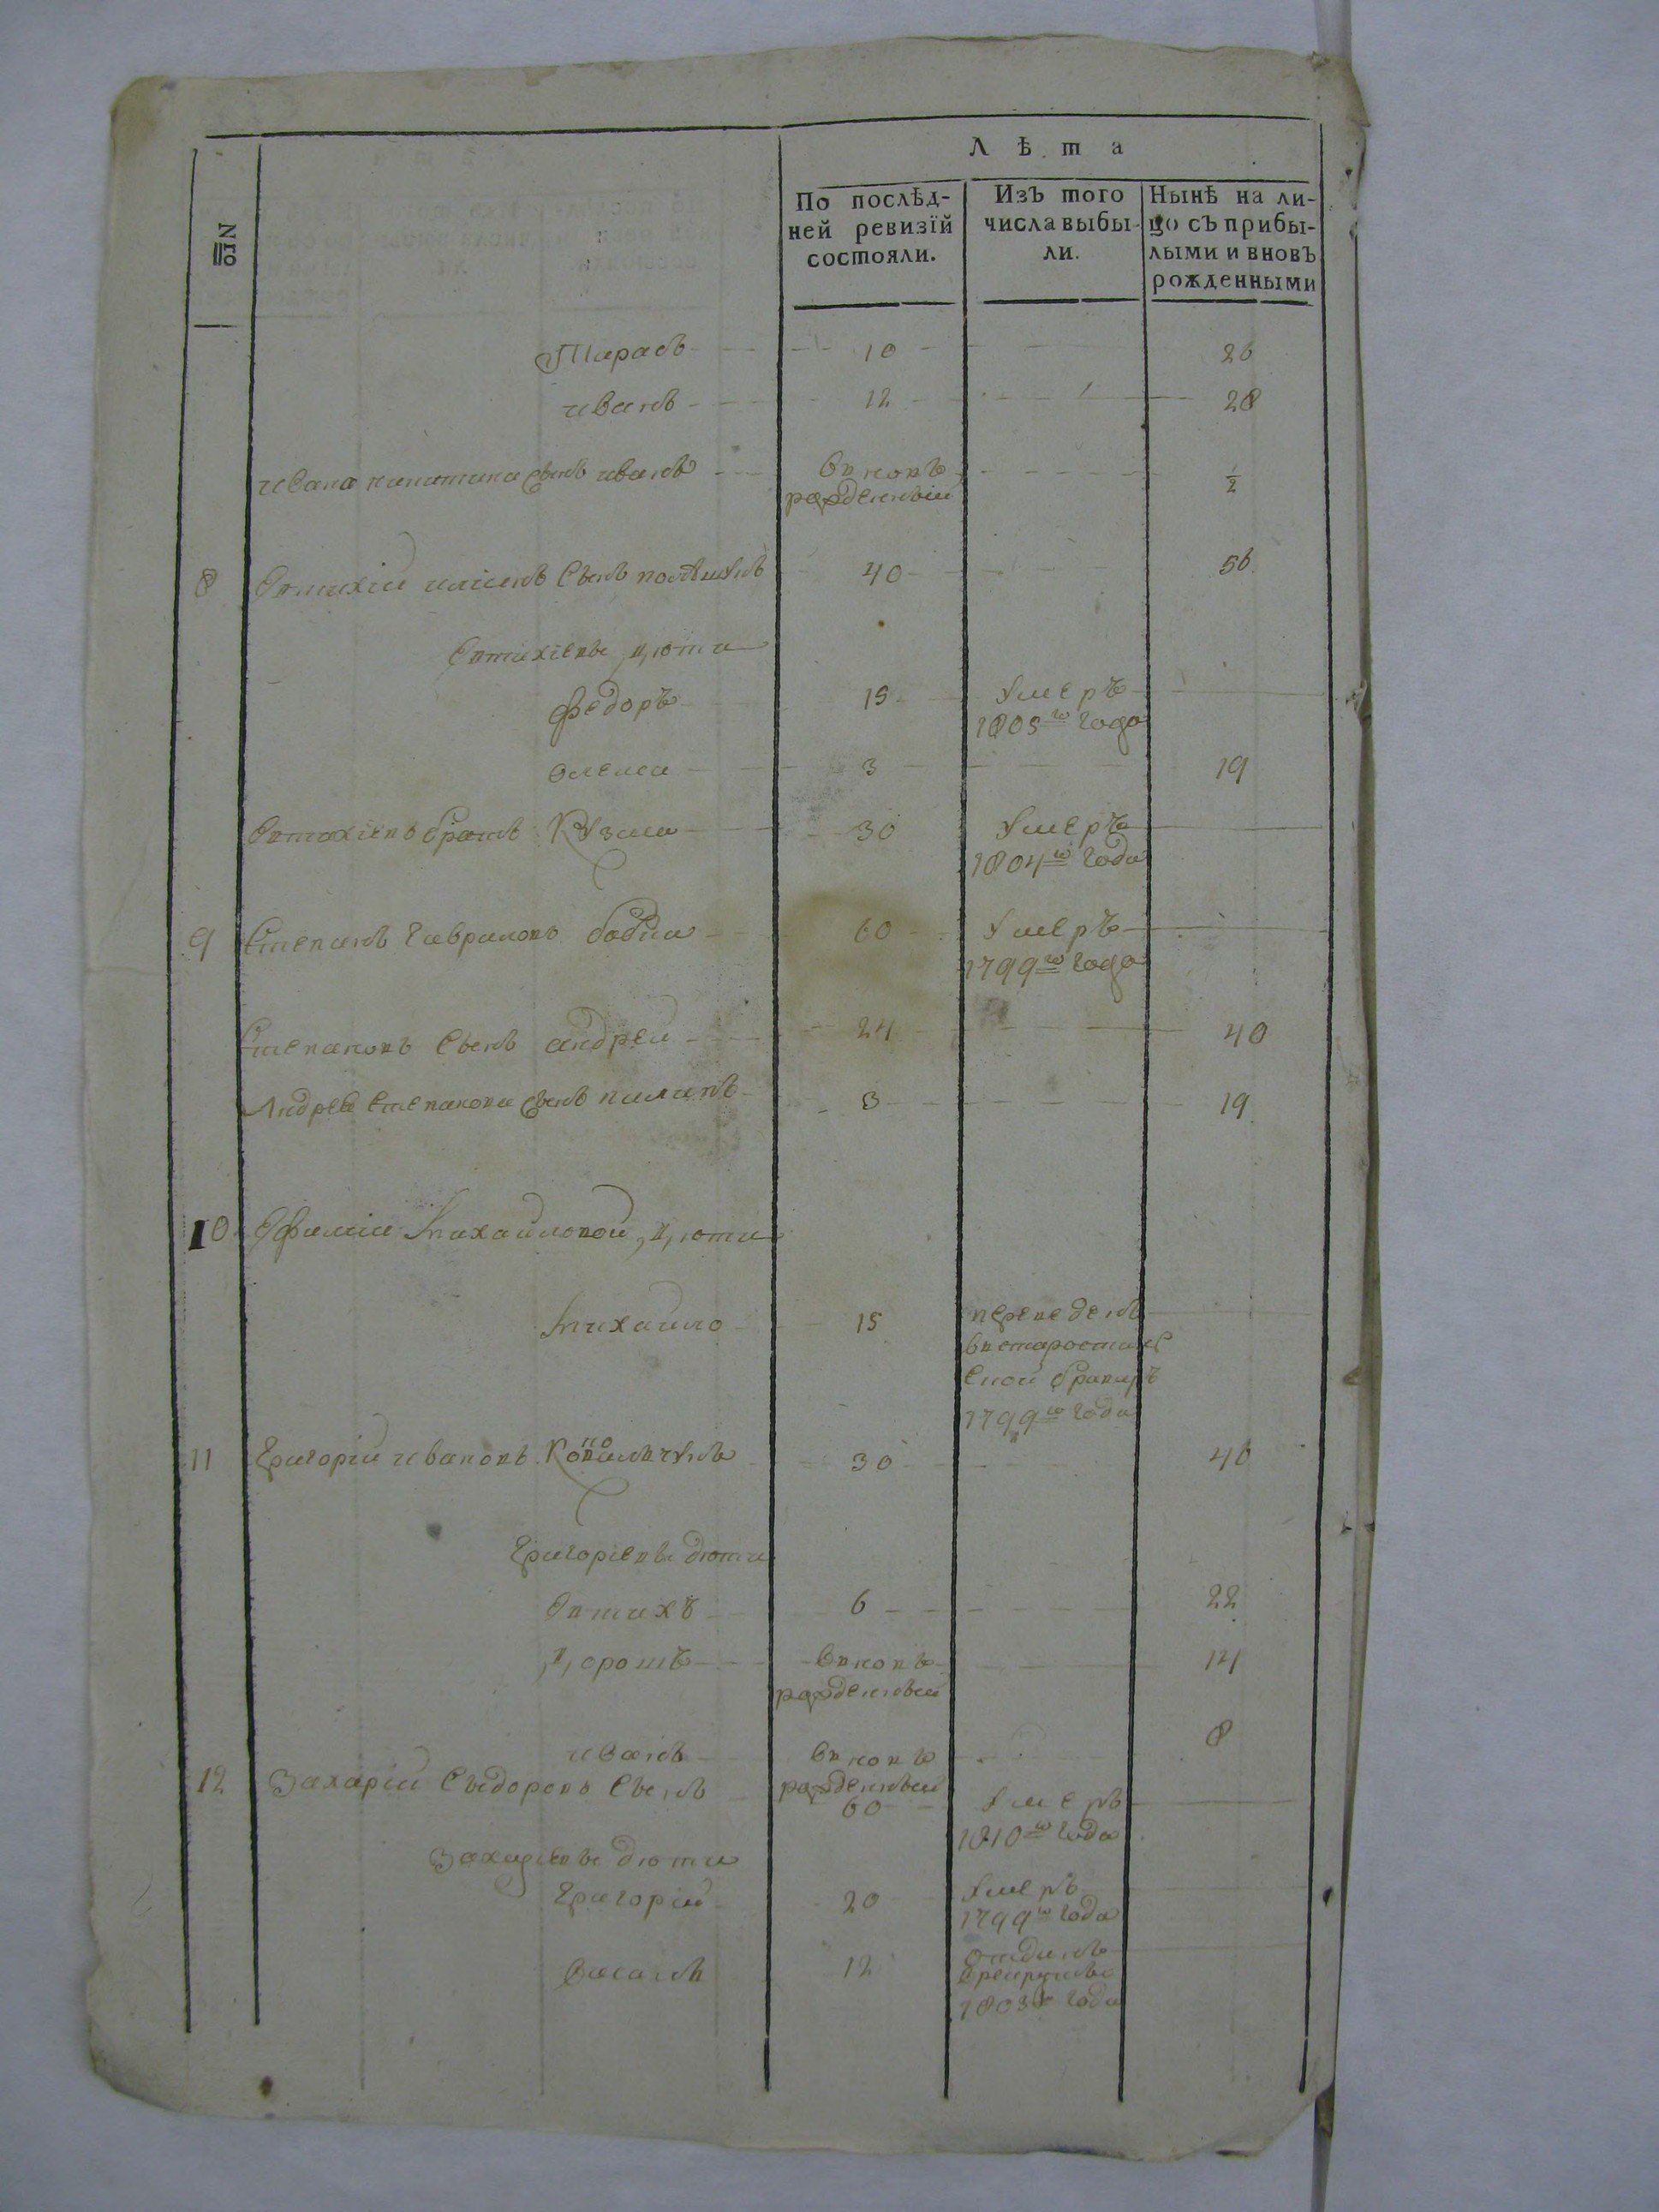 Лѣта
№
По послѣд-
ней ревизїй
состояли.
Изъ того
числа выбы-
ли.
Нынѣ на ли-
цо съ прибы-
лыми и вновь
рожденными
Тарасъ 10 26
иванъ 12 28
ивана никитина сынъ иванъ вновъ ½
рожденный
8 Евтихій сынъ 40 56
Евтихіевы дюти
федоръ 15 Умеръ
1805го года
3 19
Евтихіевъ братъ Кузма 30 Умеръ
1804го года
9 Степанъ Гавриловъ 60 Умеръ
1799го года
Степановъ сынъ андрей 24 40
Андрея степанова сынъ пилипъ 3 19
10 Ефимїи Михайловой дюти
Михайло 15 переведенъ
1799го года
11 Григорій ивановъ 30 46
Григоріевы дюти
Евтихъ 6 22
Дорошъ вновъ 14
рожденный
иванъ вновъ 8
рожденный
12 Захарій Сыдоровъ сынъ 60 Умеръ
1810го года
Захаріевы дюти
Григорій 20 Умеръ
1799го года
Василь 12 отданъ
в рекруты
1803 года